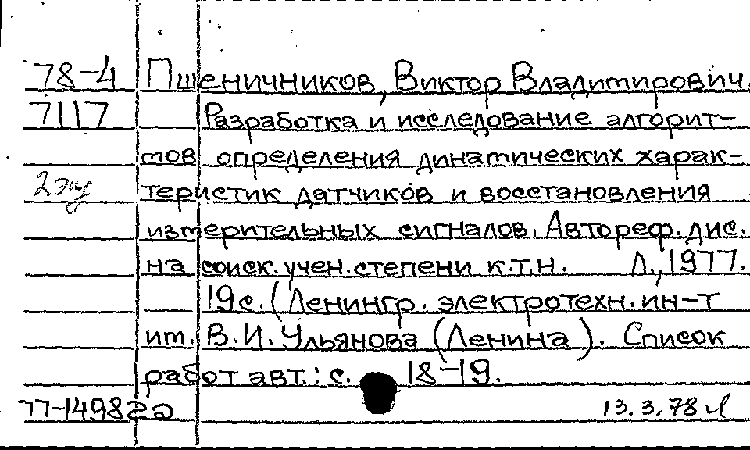 78-4 Пшеничников, Виктор Владимирович.
7117 Разработка и исследование алгорит-
мов определения динамических харак-
2 эку теристик датчиков и восстановления
измерительных сигналов. Автореф. дис.
на соиск. учен. степени к.т.н. Л., 1977.
19 с. (Ленингр. электротехн. ин-т
им. В.И. Ульянова (Ленина). Список
работ авт.: с. 18-19.
77-14982а 13.3.78